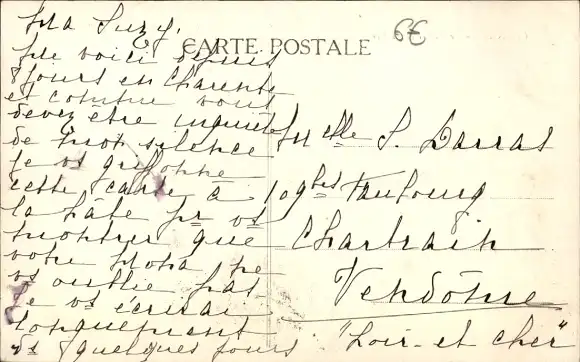 Ma Suzy,
CARTE POSTALE
6€
Me voici depuis
8 jours en Charente
et comme vous
devez être inquiète
de mon silence
je vs griffonne
cette carte à
la hâte pr vs
montrer que
votre Mona ne
vs oublie pas
Je vs écrirai
longuement
ds quelques jours
Melle S. Darras
109bis Faubourg
Chartrain
Vendôme
"Loir-et-cher"